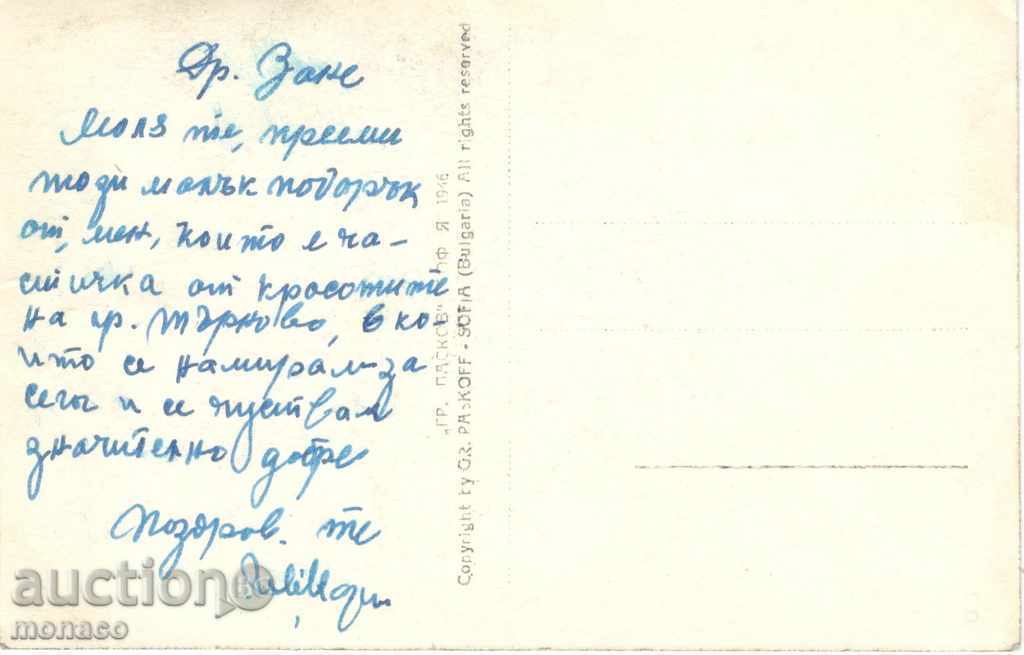 Др. Зане
Моля те, приеми
този малък подарък
от мен, който е ча-
стичка от красотите
на гр. Търново, в ко-
ито се намирам за
сега и се чуствам
значително добре
Поздров. те
"ГР. ПАСКОВ" 1946
Copyright by GR. PASKOFF - SOFIA (Bulgaria) All rights reserved
auction
monaco